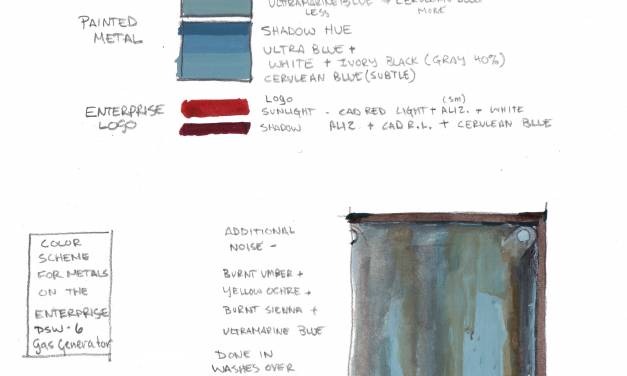 ULTRAMARINE BLUE + CERULEAN BLUE
LESS MORE
PAINTED
METAL
SHADOW HUE
ULTRA BLUE +
WHITE + IVORY BLACK (GRAY 40%)
CERULEAN BLUE (SUBTLE)
ENTERPRISE
LOGO
LOGO
(SM)
SUNLIGHT - CAD RED LIGHT + ALIZ. + WHITE
SHADOW ALIZ + CAD R.L. + CERULEAN BLUE
COLOR
SCHEME
FOR METALS
ON THE
ENTERPRISE
DSW-6
Gas Generator
ADDITIONAL
NOISE -
BURNT UMBER +
YELLOW OCHRE +
BURNT SIENNA +
ULTRAMARINE BLUE
DONE IN
WASHES OVER